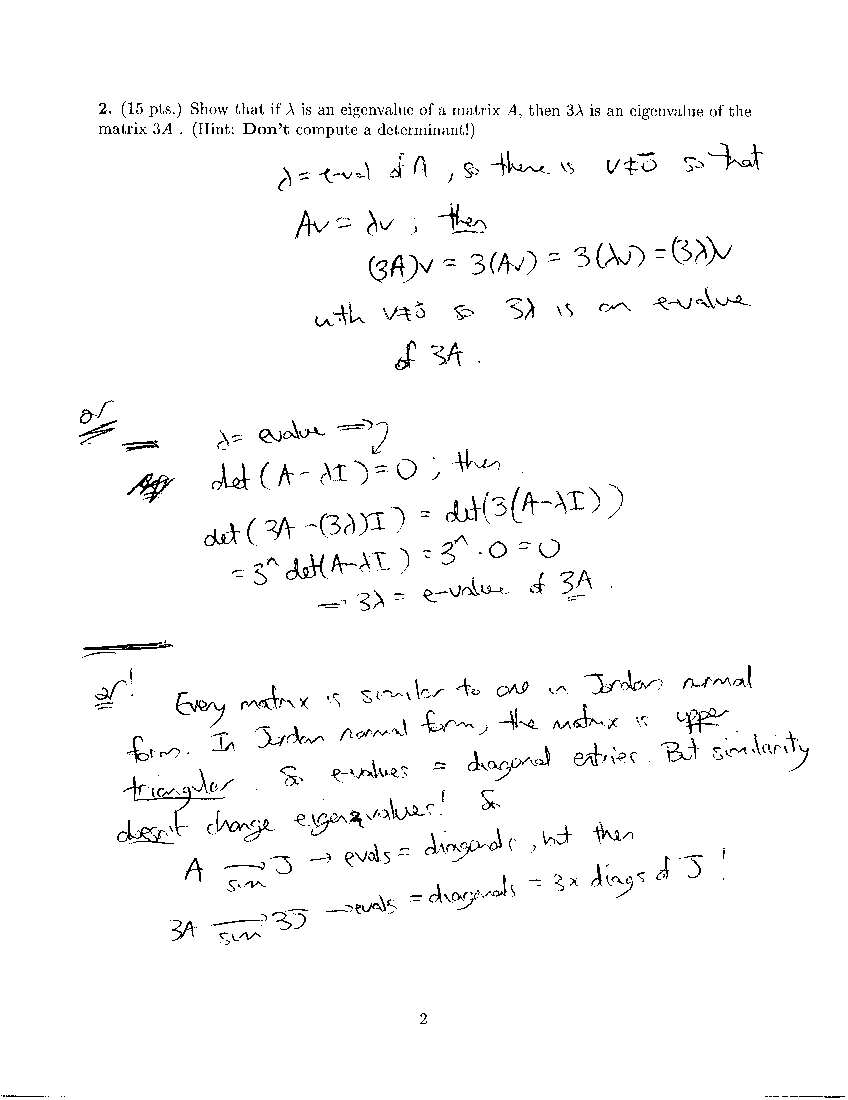 2. (15 pts.) Show that if λ is an eigenvalue of a matrix A, then 3λ is an eigenvalue of the
matrix 3A . (Hint: Don't compute a determinant!)
λ = e-val of A , so there is v≠0⃗ so that
Av = λv ; then
(3A)v = 3(Av) = 3(λv) = (3λ)v
with v≠0⃗ so 3λ is an e-value
of 3A .
or
λ = evalue ⇒
det(A - λI) = 0 ; then
det(3A - (3λ)I) = det(3(A-λI))
= 3ⁿ det(A-λI) = 3ⁿ · 0 = 0
⇒ 3λ = e-value of 3A .
or!
Every matrix is similar to one in Jordan normal
form. In Jordan normal form, the matrix is upper
triangular. So e-values = diagonal entries. But similarity
doesn't change eigenvalues! So
A →sim J → evals = diagonals, but then
3A →sim 3J → evals = diagonals = 3x diags of J !
2